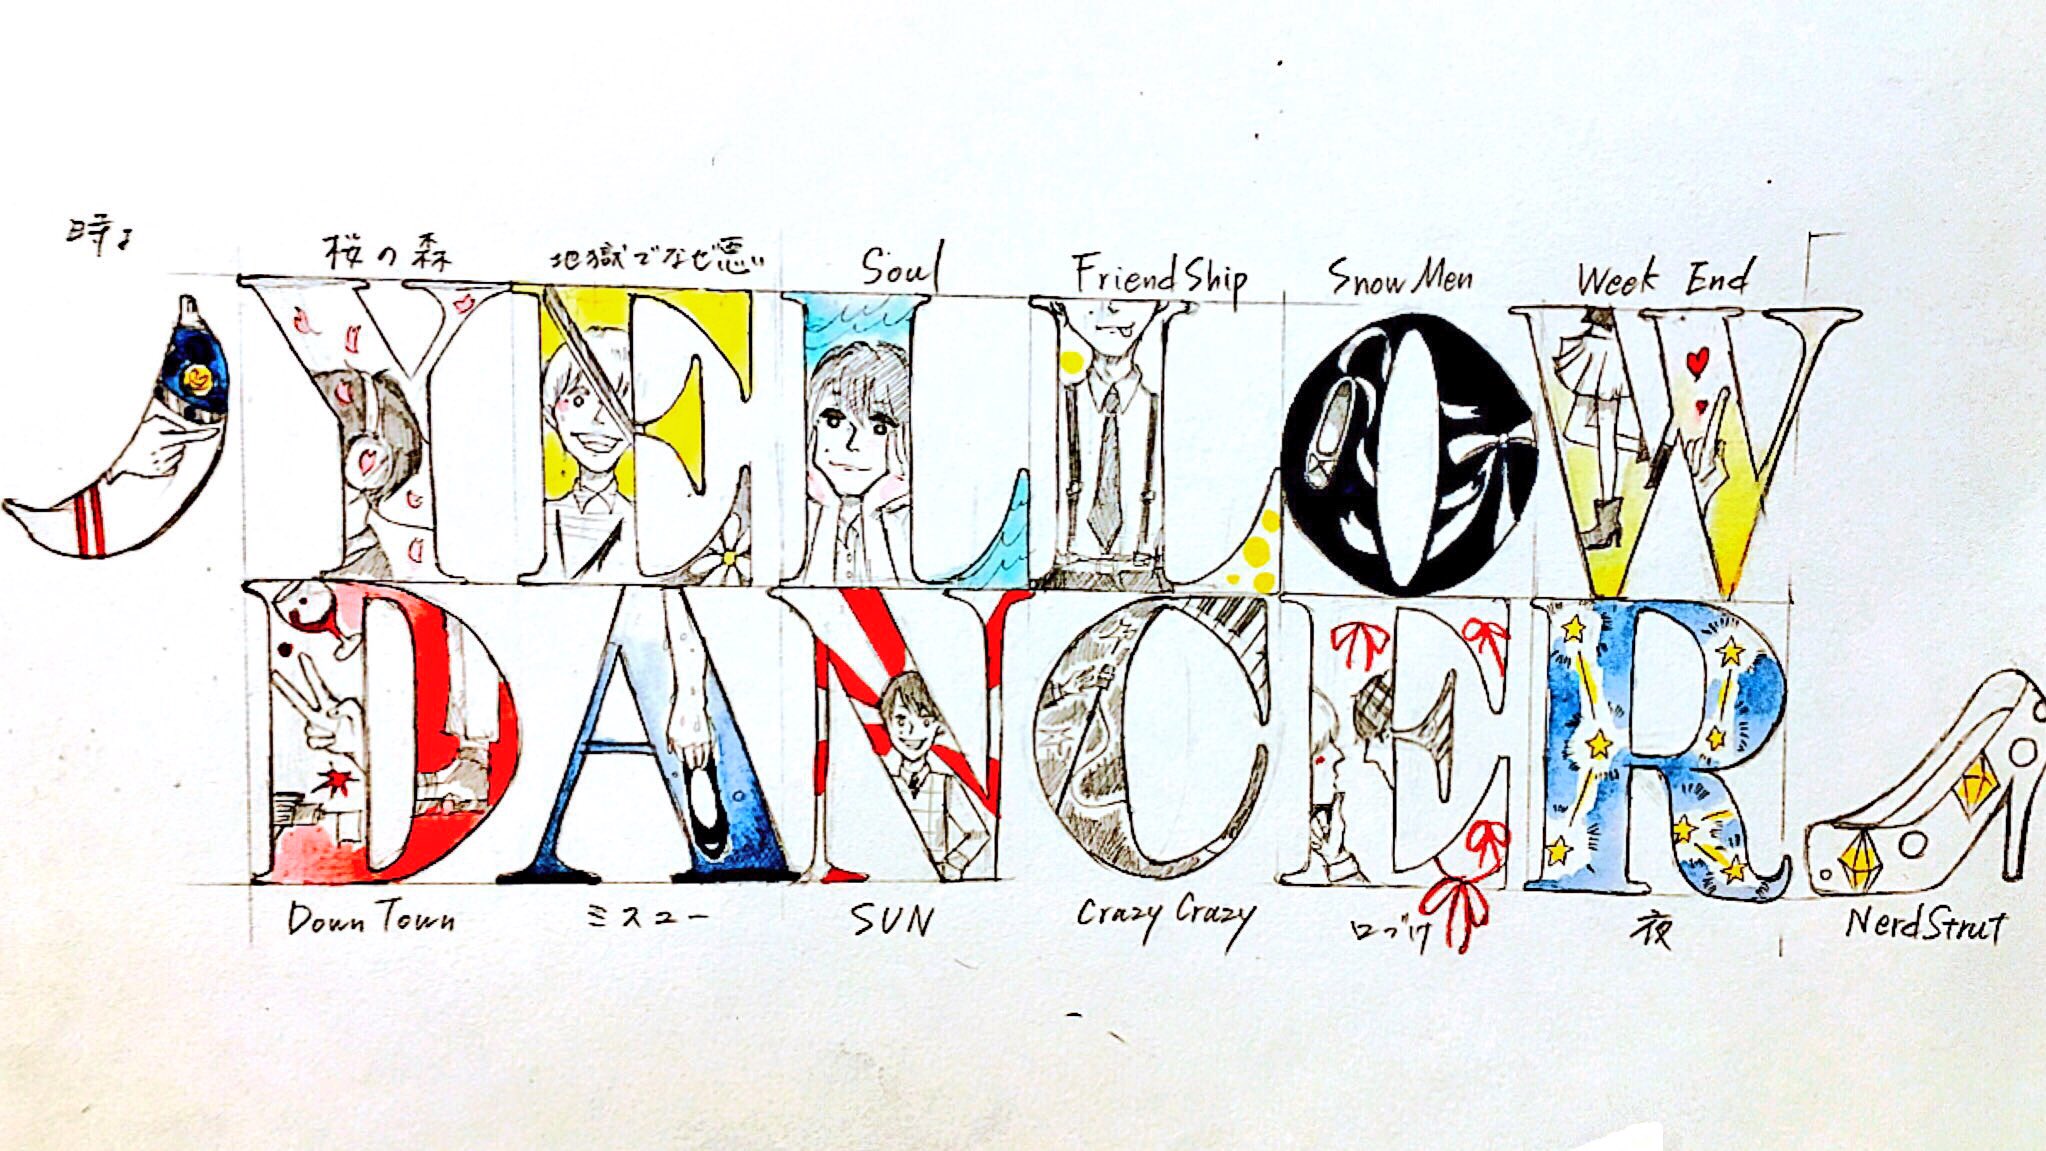 時よ
桜の森
地獄でなぜ悪い
Soul
Friend Ship
Snow Men
Week End
YELLOW
DANCER
Down Town
ミスユー
SUN
Crazy Crazy
口づけ
夜
Nerd Strut